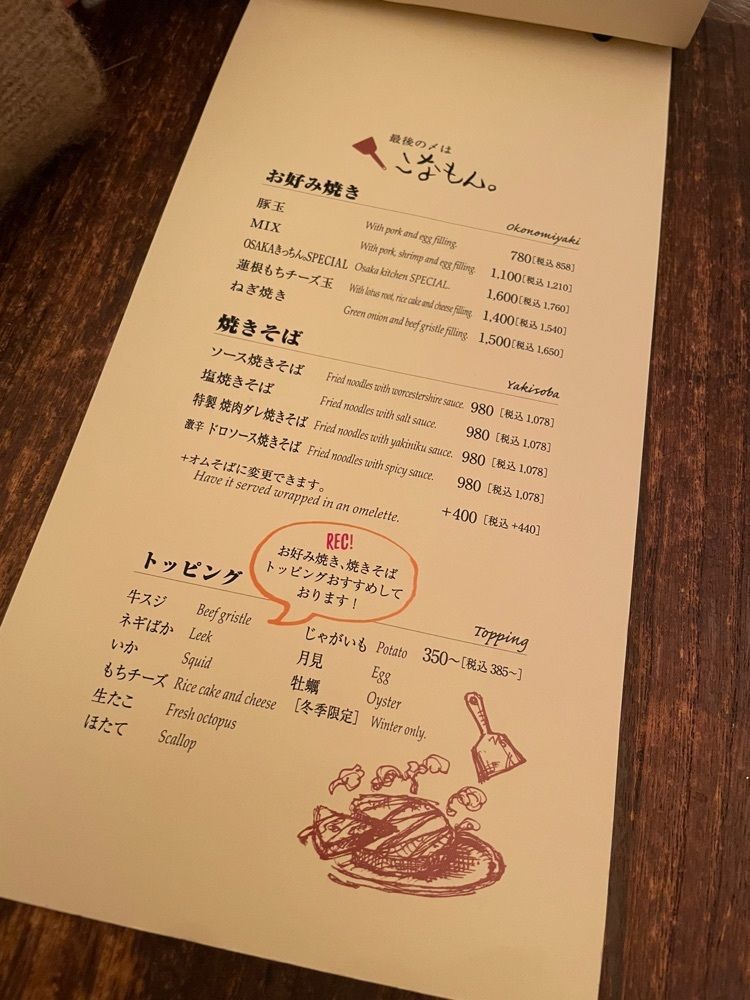 最後の〆は
こなもん。
お好み焼き Okonomiyaki
豚玉 With pork and egg filling. 780[税込 858]
MIX With pork, shrimp and egg filling. 1,100[税込 1,210]
OSAKAきっちん。SPECIAL Osaka kitchen SPECIAL. 1,600[税込 1,760]
蓮根もちチーズ玉 With lotus root, rice cake and cheese filling. 1,400[税込 1,540]
ねぎ焼き Green onion and beef gristle filling. 1,500[税込 1,650]
焼きそば Yakisoba
ソース焼きそば Fried noodles with worcestershire sauce. 980 [税込 1,078]
塩焼きそば Fried noodles with salt sauce. 980 [税込 1,078]
特製 焼肉ダレ焼きそば Fried noodles with yakiniku sauce. 980 [税込 1,078]
激辛 ドロソース焼きそば Fried noodles with spicy sauce. 980 [税込 1,078]
+オムそばに変更できます。
Have it served wrapped in an omelette. +400 [税込 +440]
REC!
お好み焼き、焼きそば
トッピングおすすめして
おります!
トッピング Topping
350~[税込 385~]
牛スジ Beef gristle
ネギばか Leek
いか Squid
もちチーズ Rice cake and cheese
生たこ Fresh octopus
ほたて Scallop
じゃがいも Potato
月見 Egg
牡蠣 Oyster
[冬季限定] Winter only.